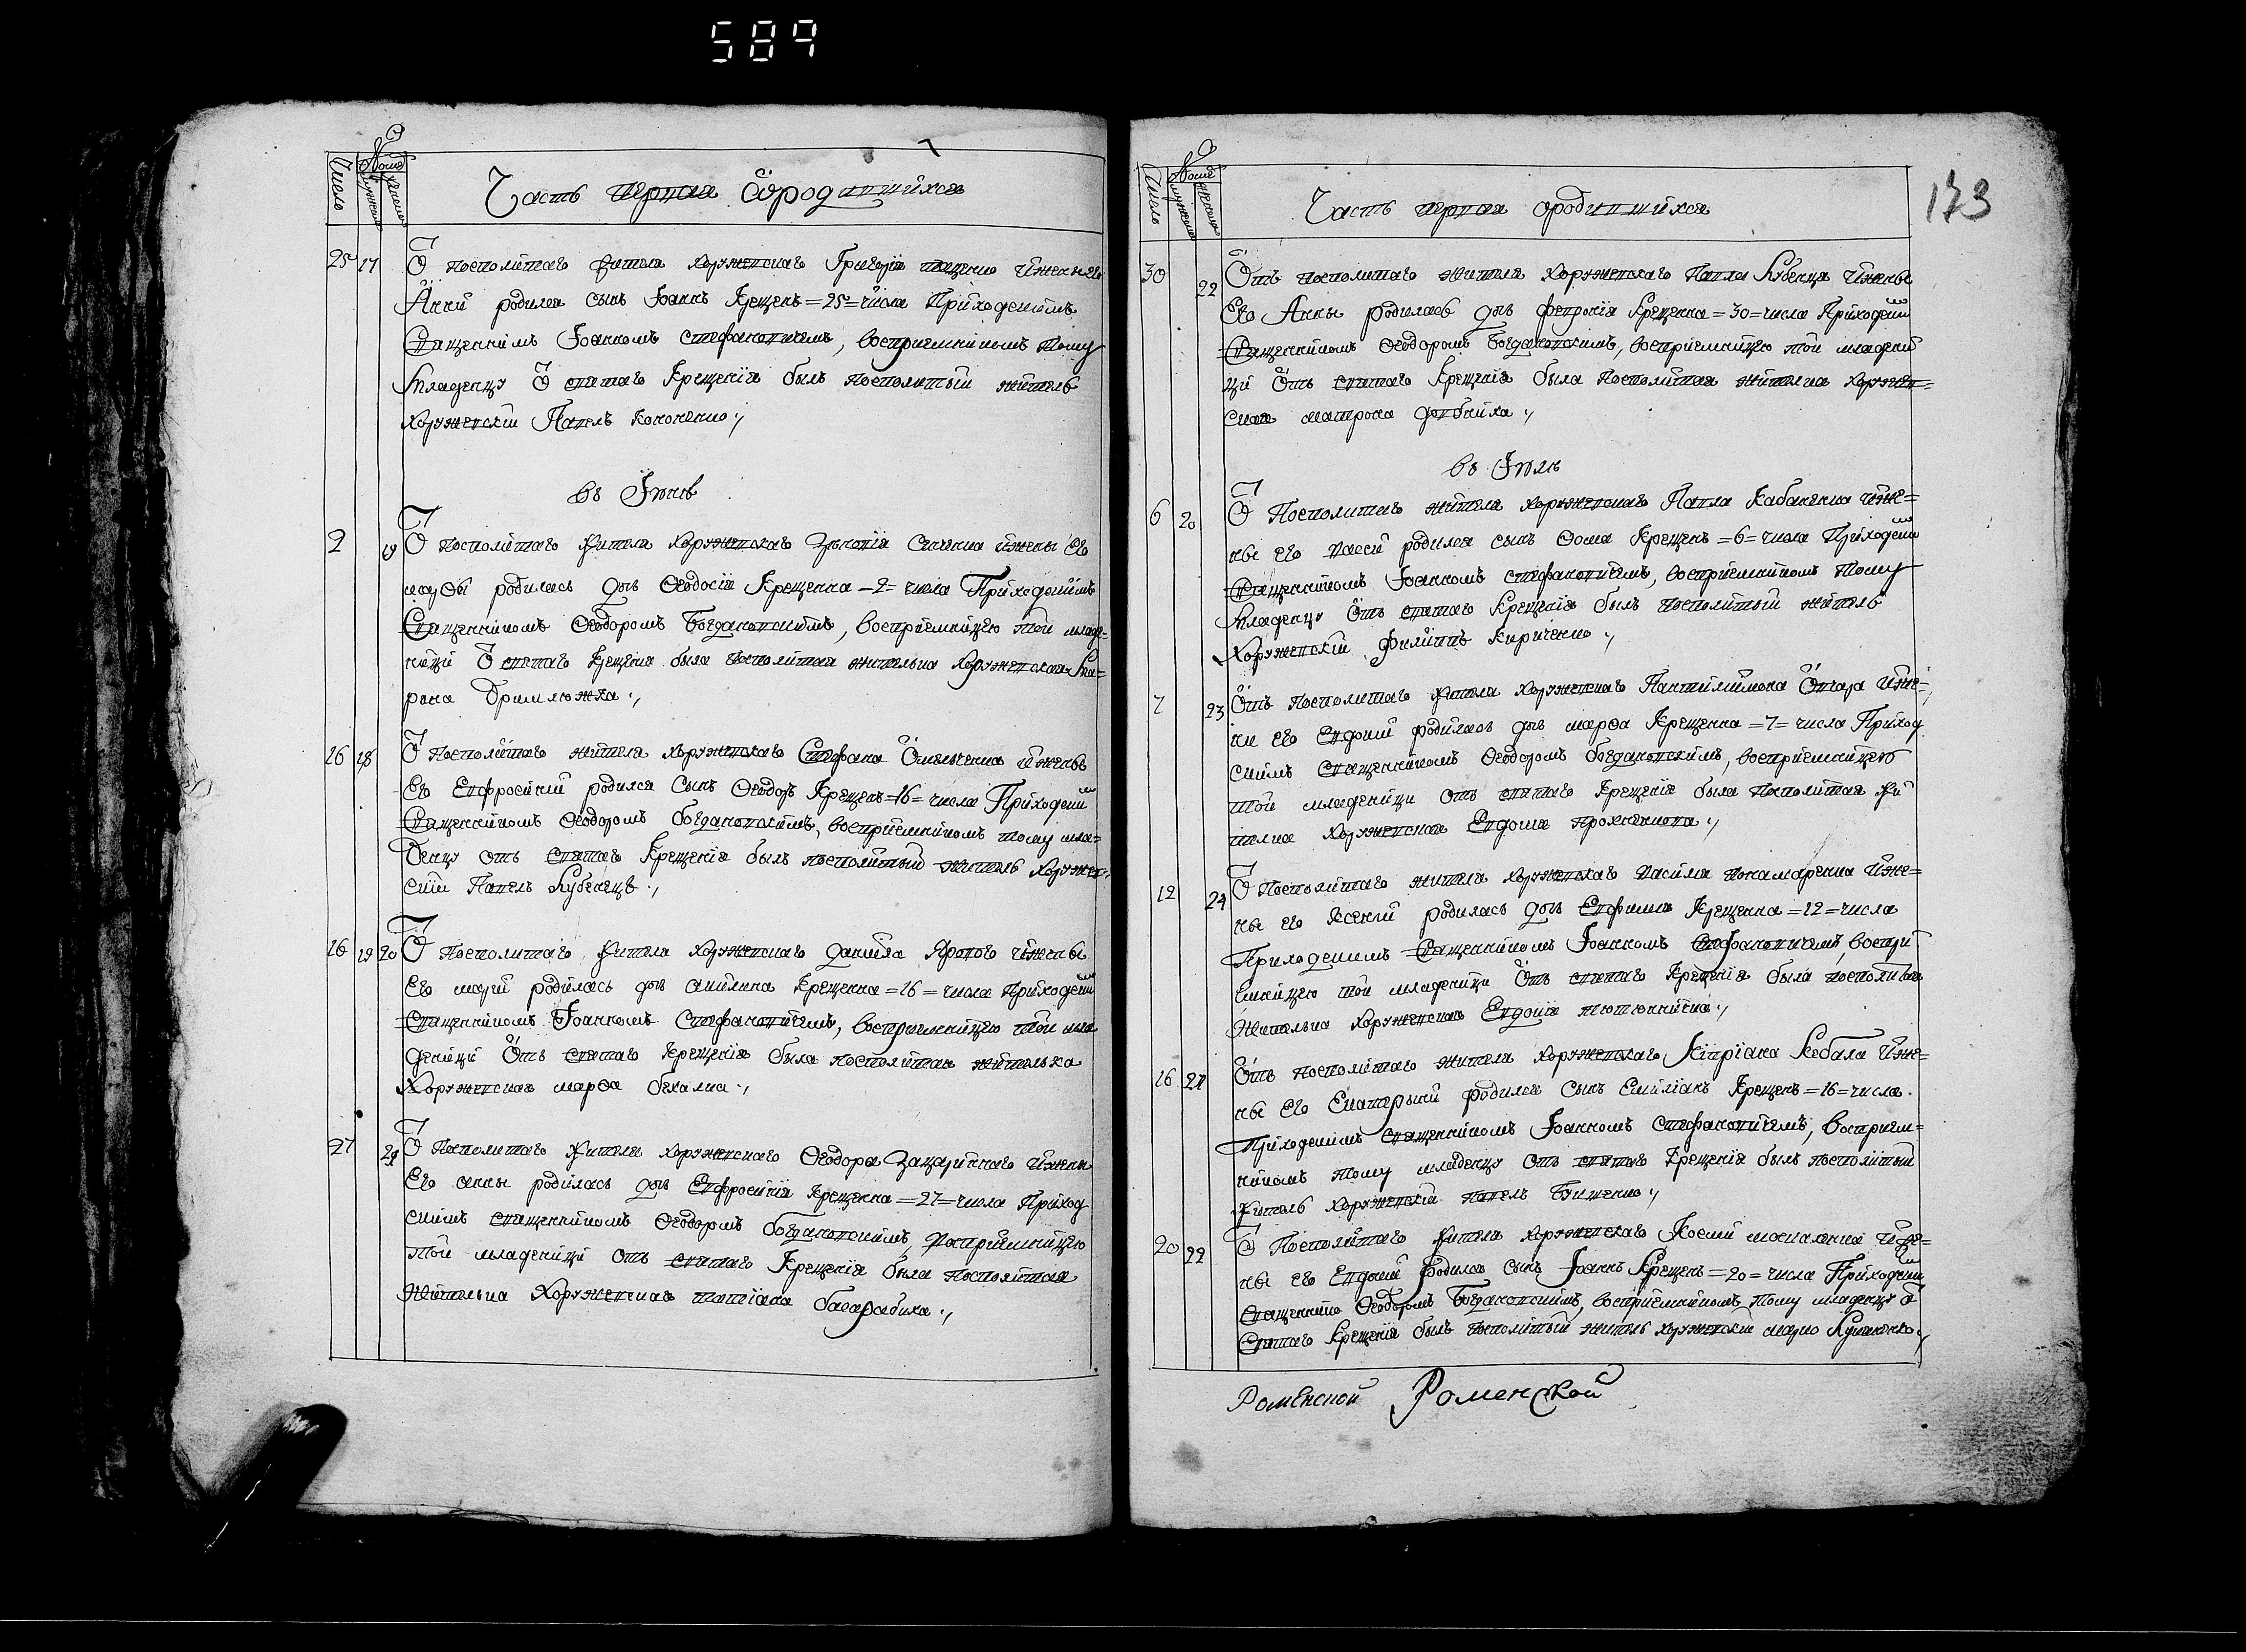 589
Число
№
мужеска
женска
Часть первая Ѿ родившихся
25 17
Ѿ посполитаго жителя хоружевскаго Григорїя ївжены его
Анны родился сынъ Іоаннъ Крещенъ =25= числа Приходскимъ
Священникомъ Іоанномъ Стефановичемъ, восприемникомъ тому
Младенцу Ѿ святаго Крещенїя былъ посполитый житель
Хоружевскїй Павелъ Кононенко ./
въ Іюнѣ
2 19
Ѿ посполитаго жителя Хоружевскаго ижены Его
марѳы родилась дщъ Ѳеодосїя Крещенна =2= числа Приходскимъ
Священникомъ Ѳеодоромъ Богдановскимъ, восприемницею той младе=
ницы Ѿ святаго Крещенїя была посполитая жителка Хоружевская Ма=
рина
16 18
Ѿ посполитаго жителя хоружевскаго Стефана Омелченка ижены
Его Евфросинїи родился Сынъ Ѳеодоръ Крещенъ =16= числа Приходским
Священникомъ Ѳеодоромъ богдановскимъ, восприемникомъ тому мла=
денцу отъ святаго Крещенїя былъ посполитый житель Хоружев=
скїй Павелъ Кубенецъ ./
16 19 20
Ѿ Посполитаго жителя хоружевскаго данїила Ярового ижены
Его марїи родилась дщъ акилина Крещенна =16= числа Приходским
Священникомъ Іоанномъ Стефановичемъ, восприемницею той мла
деницы Отъ святаго Крещенїя была посполитая жителька
Хоружевская марѳа
27 21
Ѿ Посполитаго жителя хоружевскаго Ѳеодора Зацаринного ижены
Его анны родилась дщъ Евфросинїя Крещенна =27= числа Приход
скимъ священникомъ Ѳеодоромъ богдановскимъ, восприемницею
той младеницы отъ святаго Крещенїя была посполитая
жителька Хоружевская татїана басарабика ./
173
Число
№
мужеска
женска
Часть первая ѡ родившихся
30 22
Отъ посполитаго жителя Хоружевскаго Павла Кубенца ижены
Его Анны родилась дщъ Февронїя Крещенна =30= числа Приходским
Священникомъ Ѳеодоромъ Богдановскимъ, восприемницею той младени
цы Отъ святаго Крещенїя была Посполитая жителка Хоружев=
ская матрона довбниха ./
въ Іюлѣ
6 20
Ѿ Посполитаго жителя хоружевскаго Павла Кабаненка ижe=
ны его Вассы родился сынъ Ѳома Крещенъ =6= числа Приходским
Священникомъ Іоанномъ стефановичемъ, восприемникомъ тому
Младенцу Отъ святаго Крещенїя былъ посполитый житель
Хоружевскїй Филиппъ Кириченко ./
7 23
Отъ посполитаго жителя хоружевскаго Пантилимона ижe=
ны его Евдокїи родилась дщъ марѳа Крещенна =7= числа Приход
скимъ священникомъ Ѳеодоромъ богдановскимъ, восприемницею
той младеницы отъ святаго Крещенїя была Посполитая жи
телка хоружевская Евдокїя
12 24
Ѿ Посполитаго жителя хоружевскаго Василя понамаренка ижe=
ны его Ксенїи родилась дщъ Евфимїя Крещенна =12= числа
Приходскимъ Священникомъ Іоанномъ Стефановичемъ, воспри
емницею той младеницы Отъ святаго Крещенїя была посполитая
Жителька хоружевская Евдокїя
16 21
Отъ посполитаго жителя хоружевскаго Кипрїана Кебала ижe=
ны Его Екатерины родился Сынъ Емилїанъ Крещенъ =16= числа
Приходскимъ священникомъ Іоанномъ Стефановичемъ, восприем=
никомъ тому младенцу отъ святаго Крещенїя былъ посполитый
житель хоружевскїй павелъ
20 22
Ѿ Посполитаго жителя хоружевскаго Космы ижe=
ны его Евдокїи родился сынъ Іоаннъ Крещенъ =20= числа Приходским
священнико Ѳеодоромъ Богдановскимъ, восприемникомъ тому младенцу ѿ
Святаго Крещенїя былъ посполитый житель хоружевскїй марко
Роменской Роменской